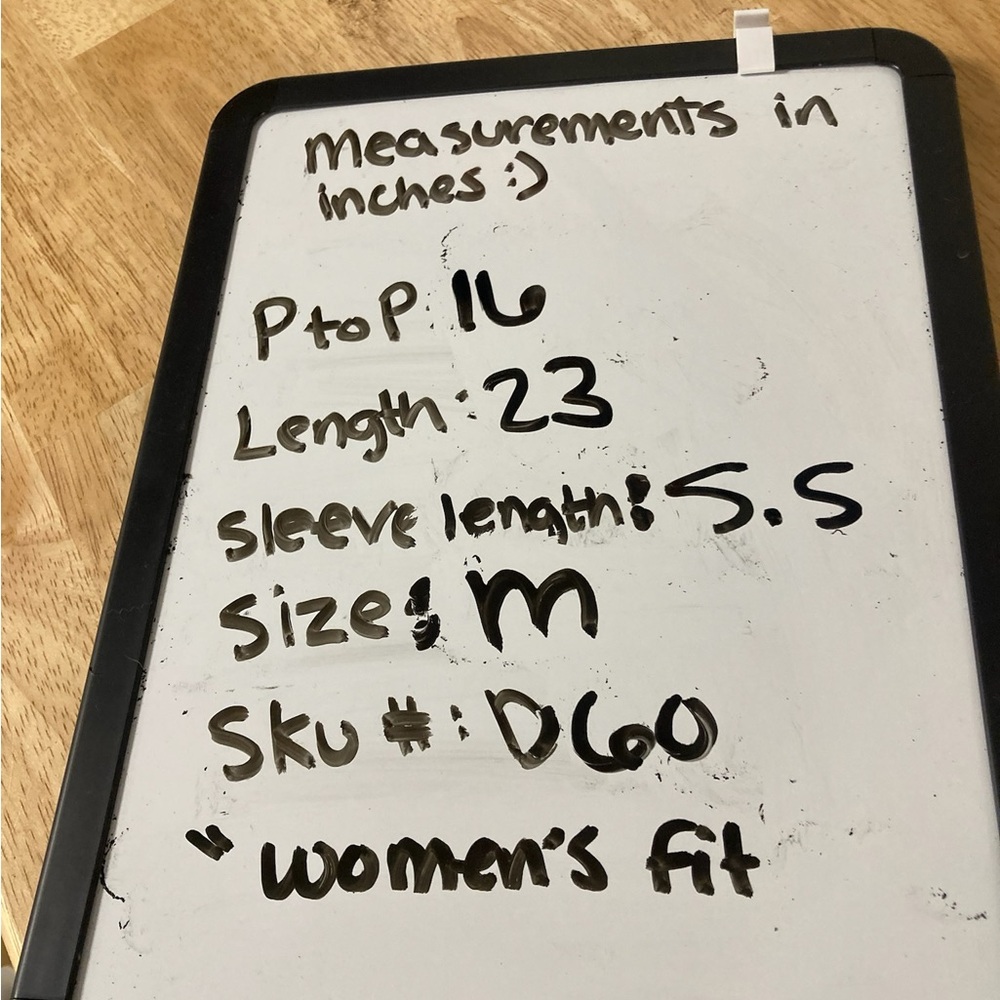 measurements in
inches :)
P to P: 16
Length: 23
sleeve length: 5.5
size: M
Sku #: D60
" women's fit